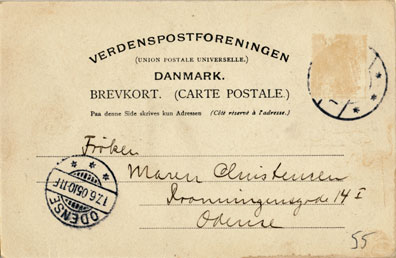 VERDENSPOSTFORENINGEN
(UNION POSTALE UNIVERSELLE.)
DANMARK.
BREVKORT. (CARTE POSTALE.)
Paa denne Side skrives kun Adressen (Côté réservé à l'adresse.)
Fröken
Maren Christensen
Dronningensgade 14 I
Odense
ODENSE
17.6.05.10-11F
55